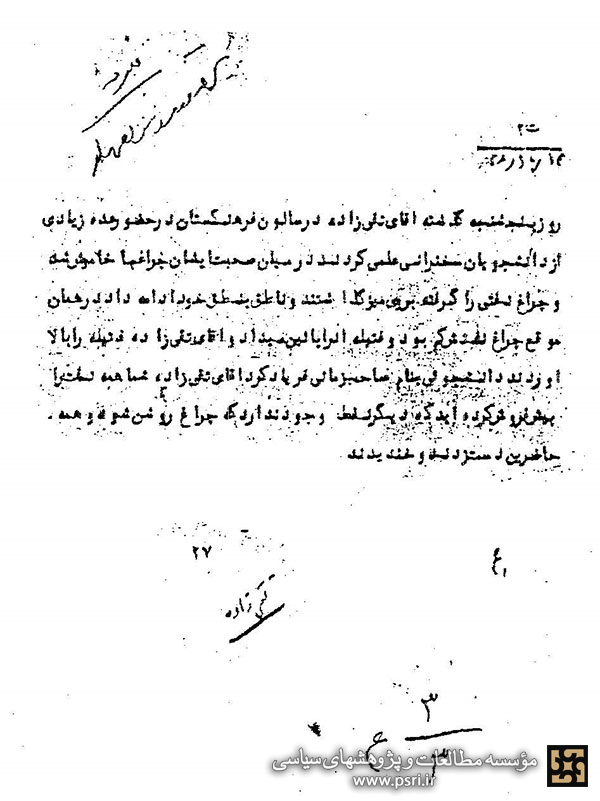 ت ۲
روز پنجشنبه گذشته اقای تقی زاده در سالون فرهنگستان در حضور عده زیادی
از دانشجویان سخنرانی علمی کردند در میان صحبت ایشان چراغها خاموش شد
و چراغ نفتی را گرفته بروی میز گذاشتند و ناطق بنطق خود ادامه داد در همان
موقع چراغ نفت کم بود و فتیله انرا پائین میداد و اقای تقی زاده فتیله را بالا
اوردند دانشجوئی بنام صاحبزمانی فریاد کرد اقای تقی زاده شما همه نفت را
پیش فروش کرده اید که دیگر نفط وجود ندارد که چراغ روشن شود و همه .
حاضرین دست زدند و خندیدند
۲۷
تقی زاده
۳
۳
ع
مؤسسه مطالعات و پژوهشهای سیاسی
www.psri.ir